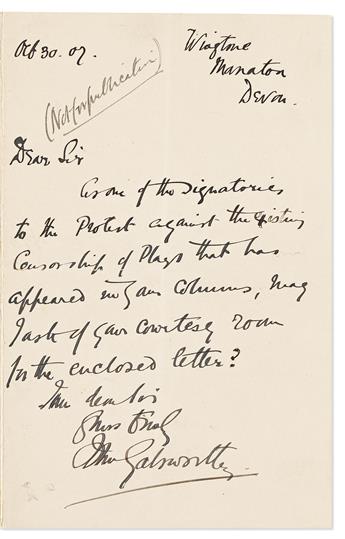 Oct 30. 07.
Wingstone
Manaton
Devon.
(Not for publication)
Dear Sir
As one of the signatories
to the Protest against the existing
Censorship of Plays that has
appeared in your columns, may
I ask of your courtesy room
for the enclosed letter?
I am dear Sir
Yours truly
John Galsworthy